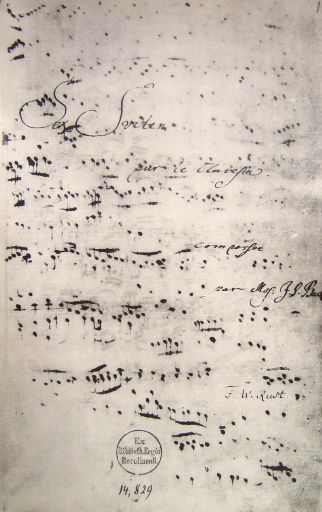 Sex Sviten
pur le Clavesin.
compossee
par Mos. J. S. Bach
F. W. Rust
Ex
Biblioth. Regia
Berolinensi.
14,829